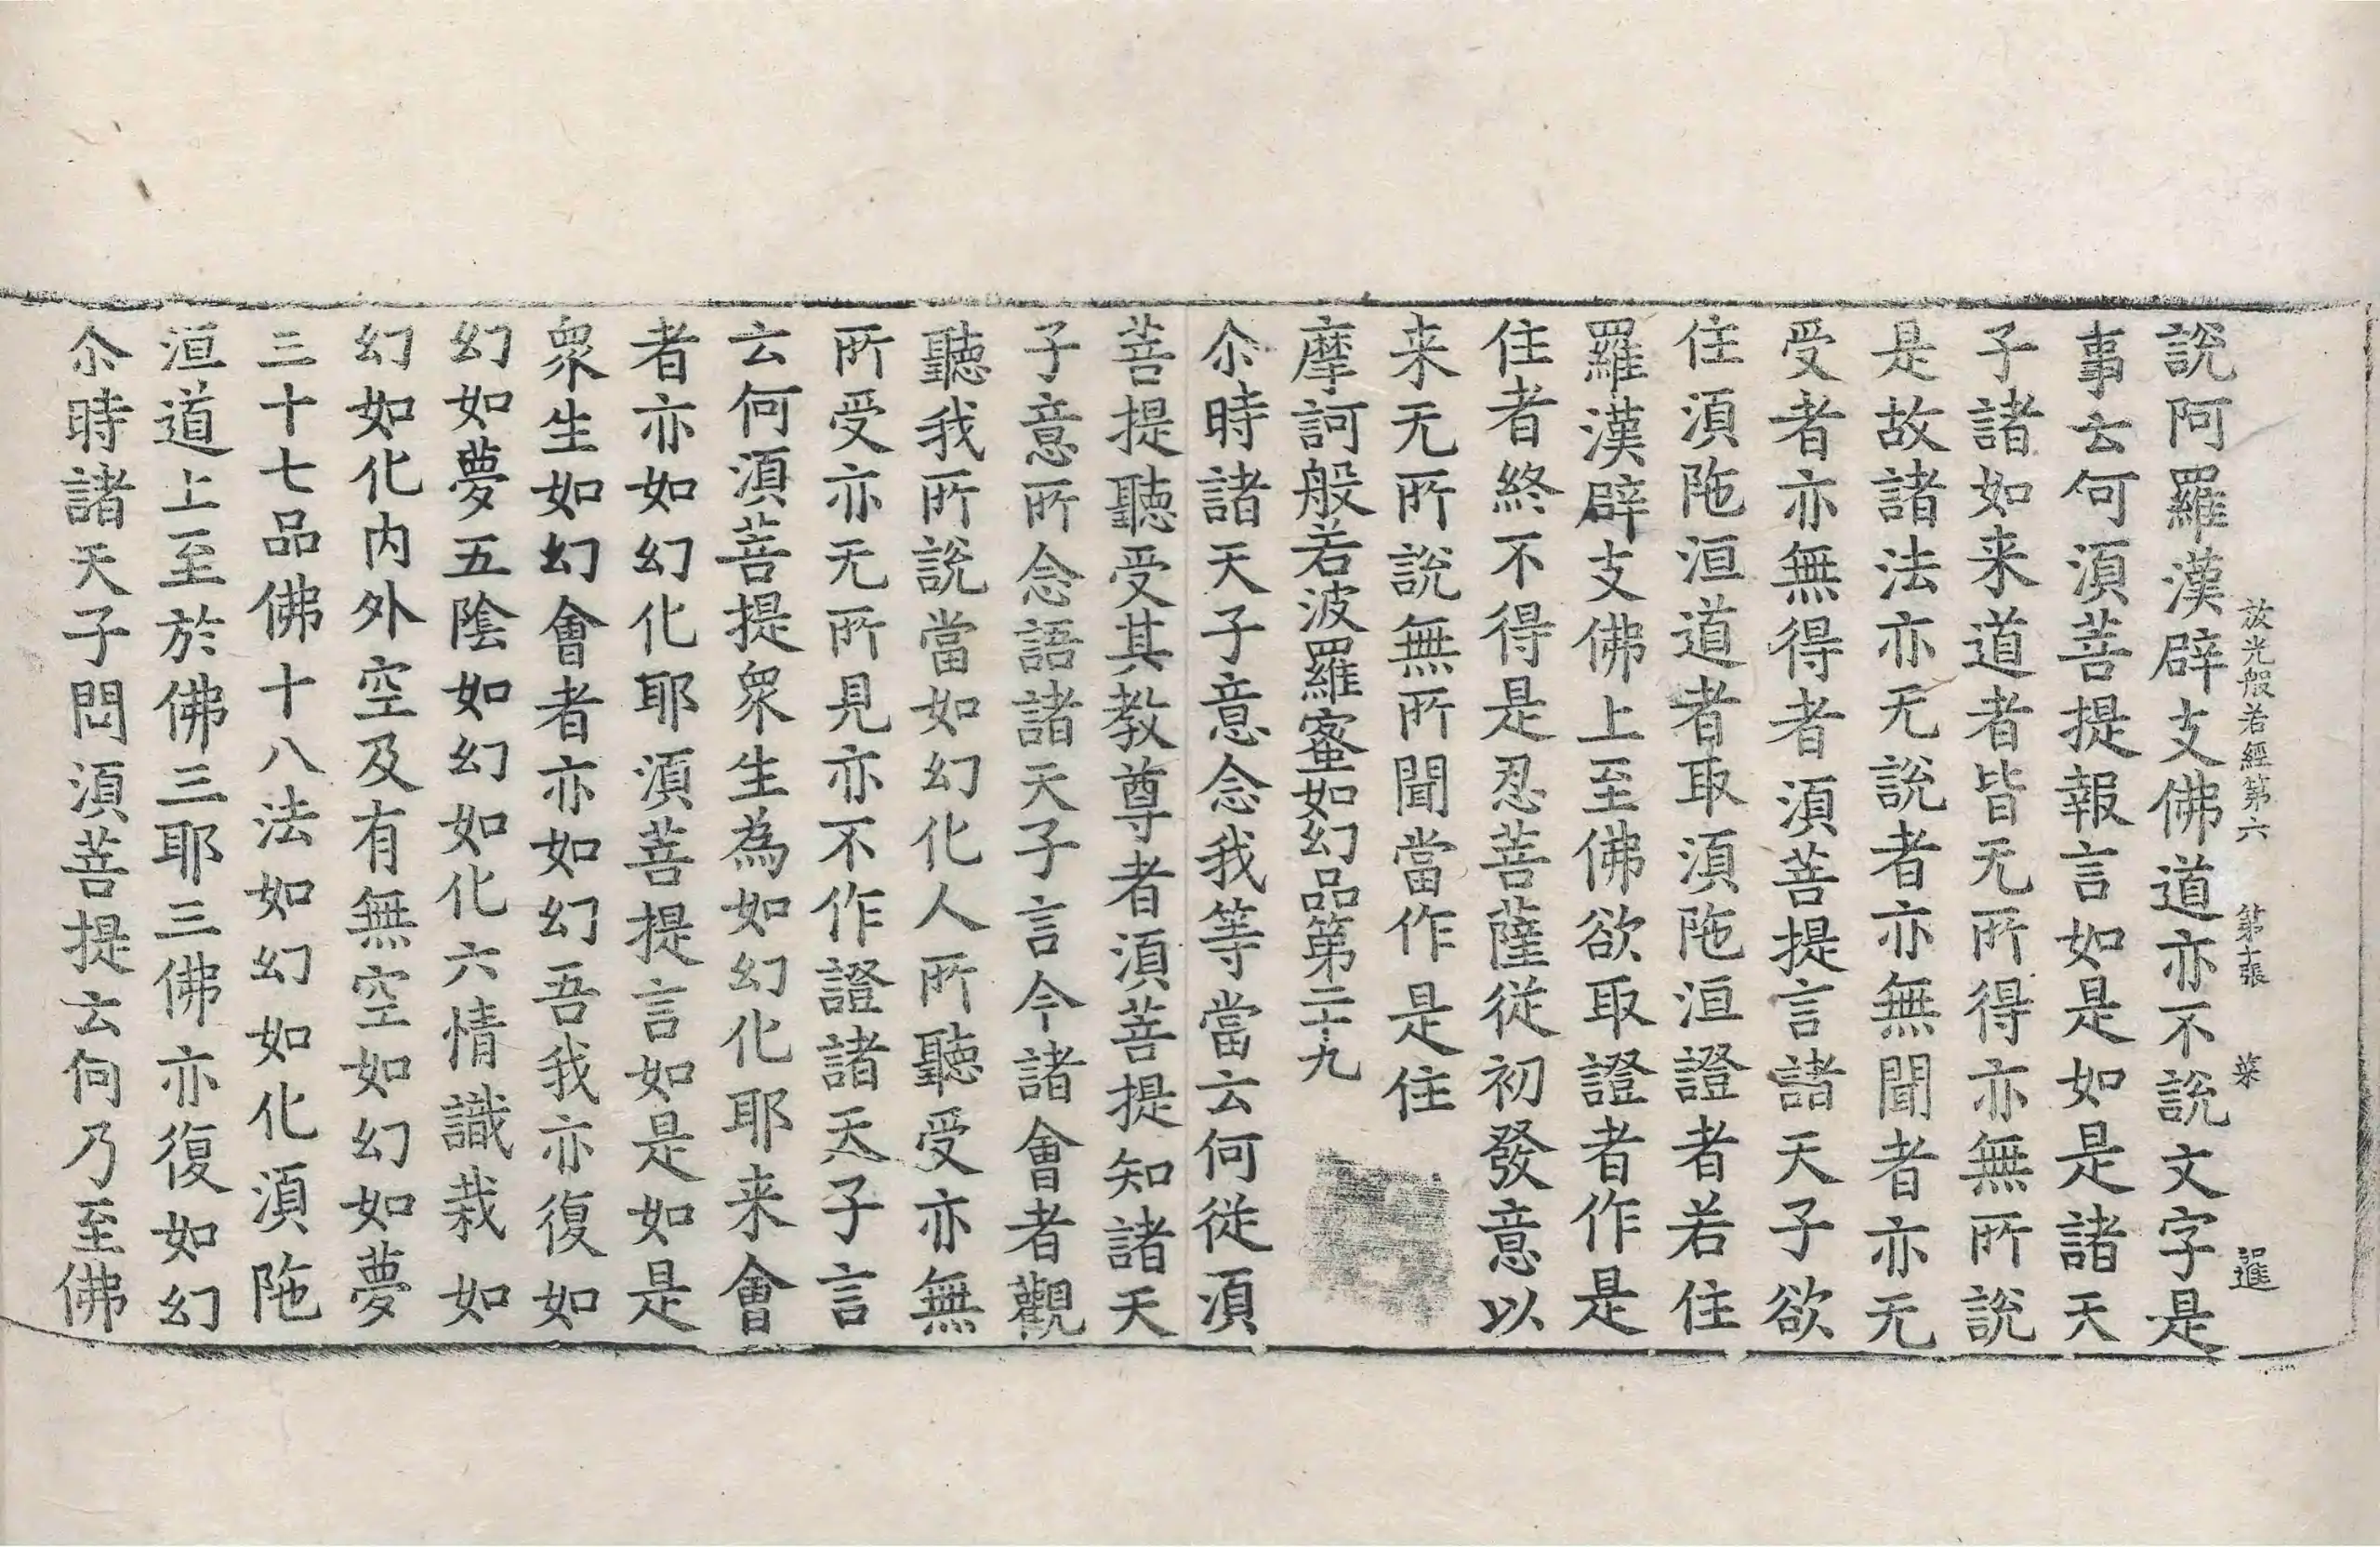 放光般若經第六 第十張 菜 進
說阿羅漢辟支佛道亦不說文字是
事云何須菩提報言如是如是諸天
子諸如来道者皆无所得亦無所說
是故諸法亦无說者亦無聞者亦无
受者亦無得者須菩提言諸天子欲
住須陁洹道者取須陁洹證者若住
羅漢辟支佛上至佛欲取證者作是
住者終不得是忍菩薩從初發意以
来无所說無所聞當作是住
摩訶般若波羅蜜如幻品第二十九
尒時諸天子意念我等當云何從須
菩提聽受其教尊者須菩提知諸天
子意所念語諸天子言今諸會者觀
聽我所說當如幻化人所聽受亦無
所受亦无所見亦不作證諸天子言
云何須菩提眾生為如幻化耶来會
者亦如幻化耶須菩提言如是如是
眾生如幻會者亦如幻吾我亦復如
幻如夢五陰如幻如化六情識栽如
幻如化内外空及有無空如幻如夢
三十七品佛十八法如幻如化須陁
洹道上至於佛三耶三佛亦復如幻
尒時諸天子問須菩提云何乃至佛